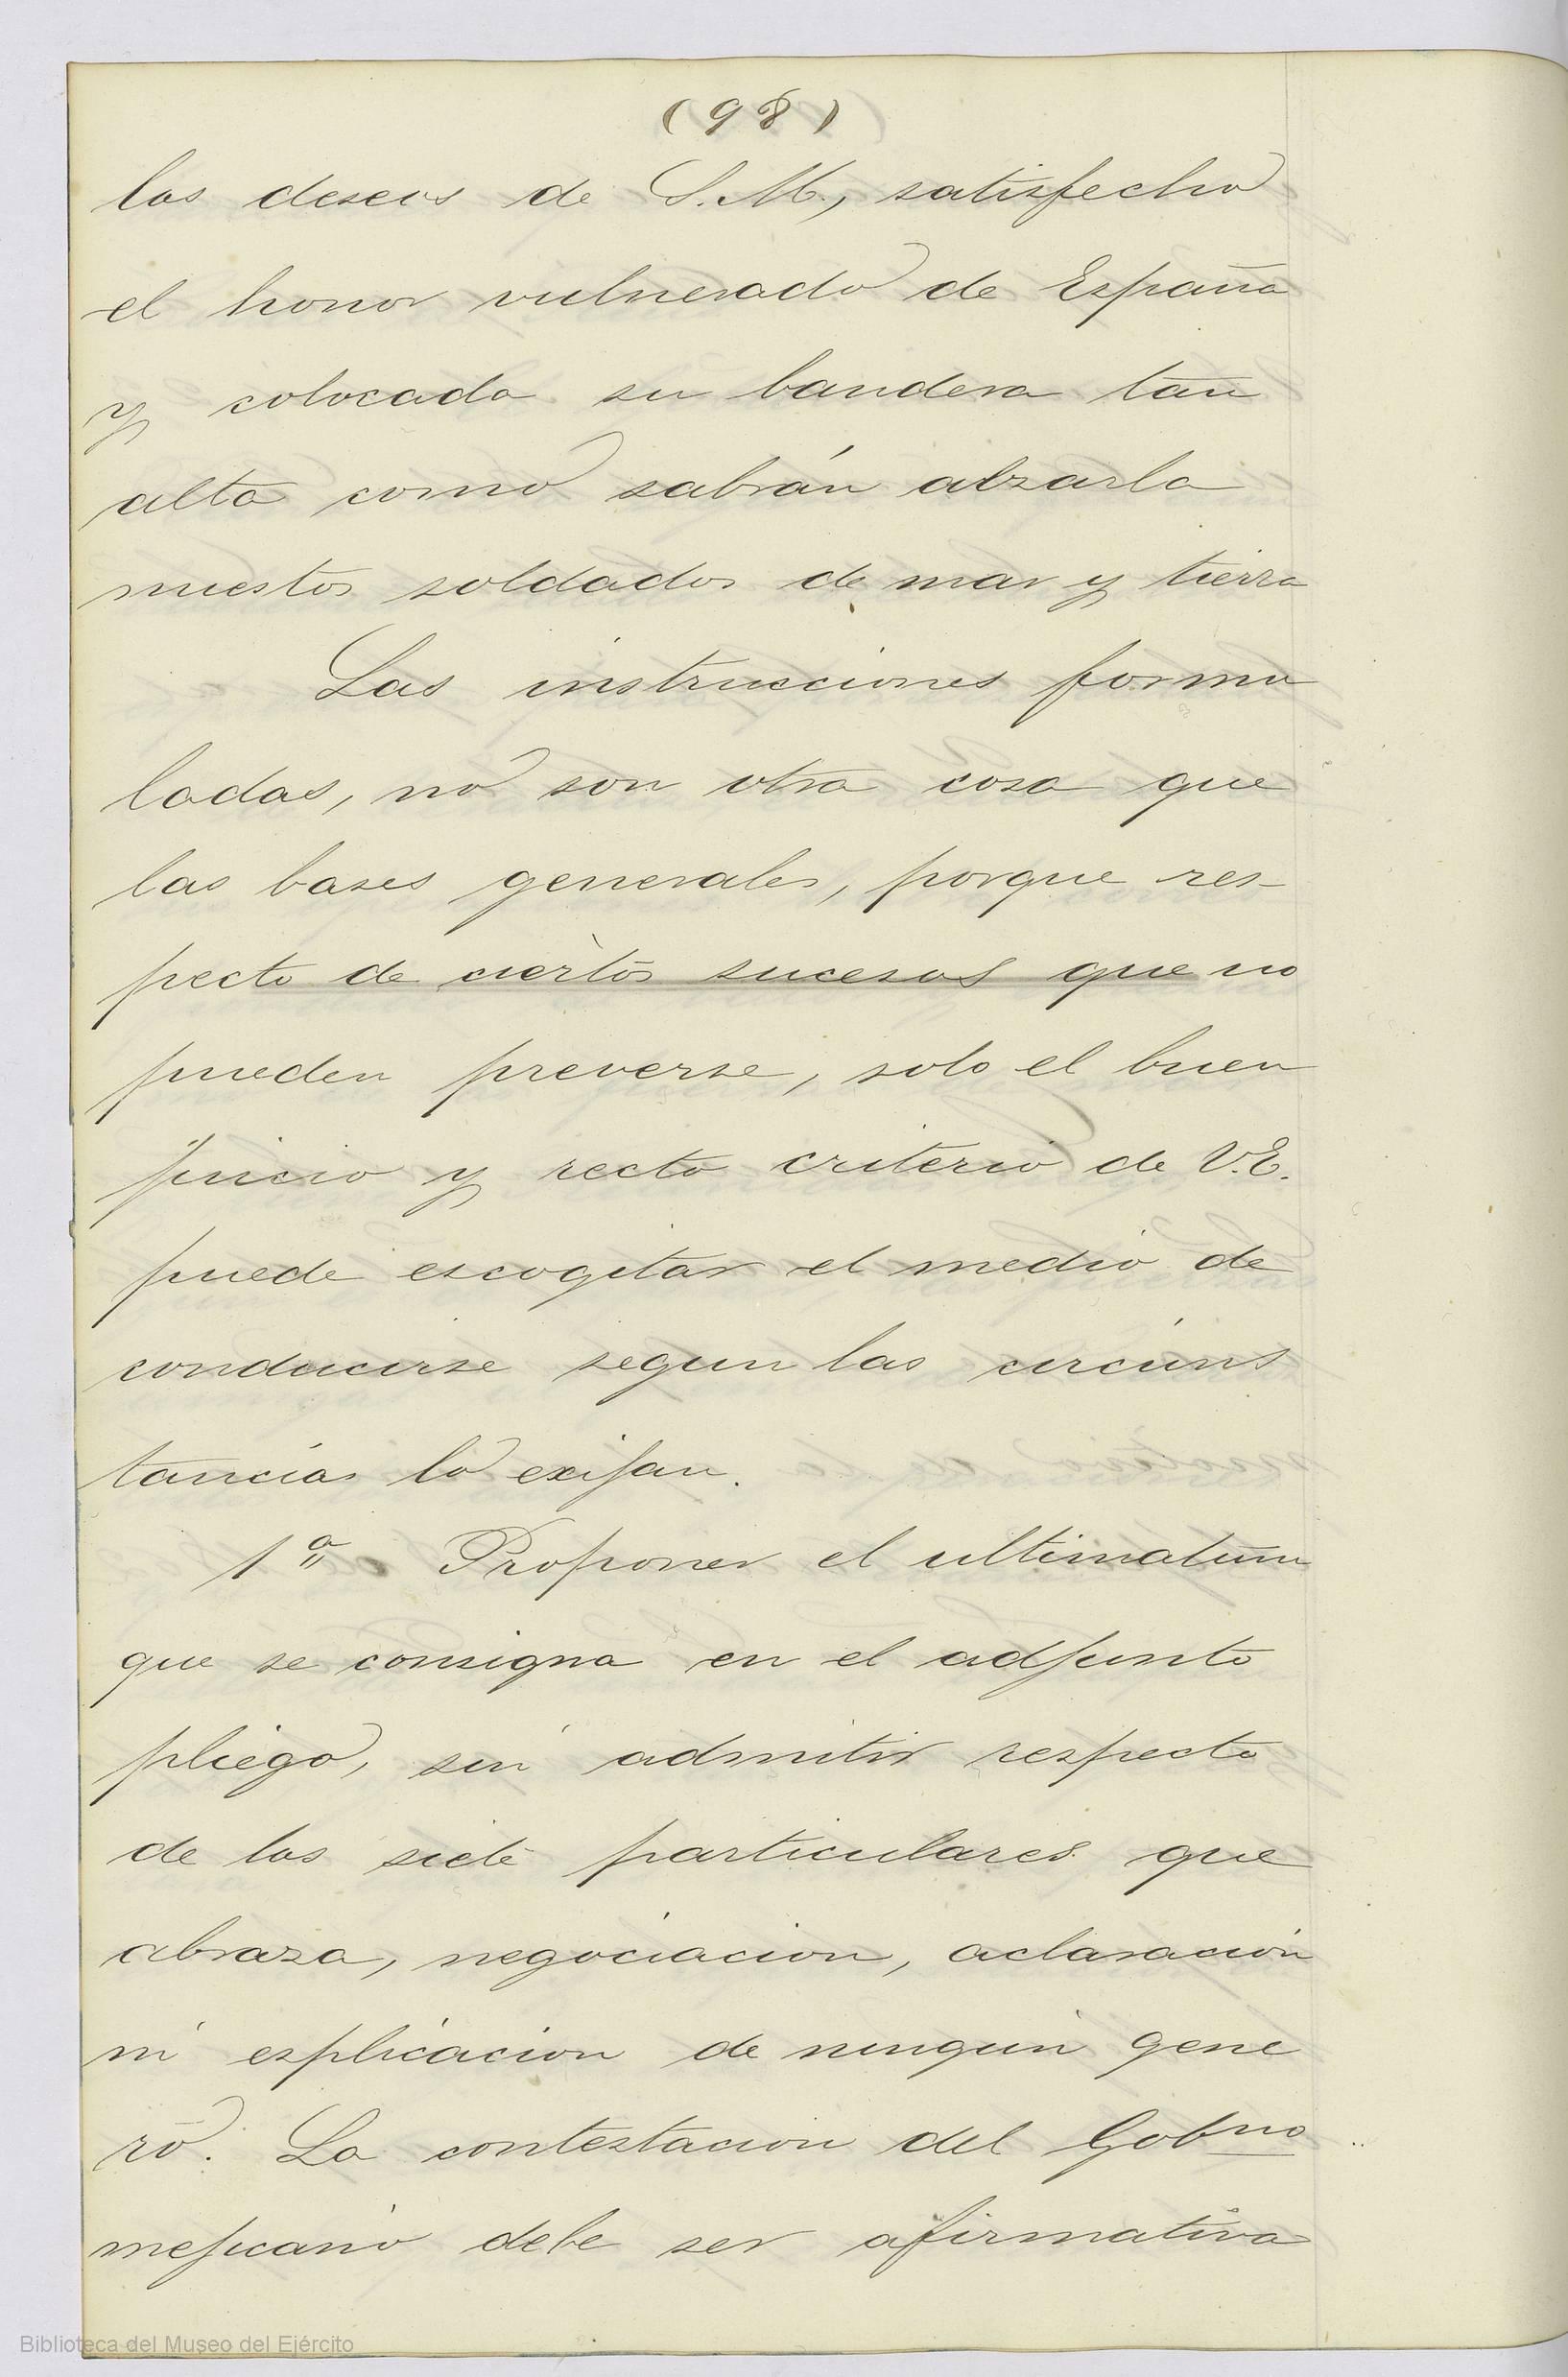 (98)
los deseos de S.M., satisfecho
el honor vulnerado de España
y colocada su bandera tan
alta como sabrán alzarla
nuestos soldados de mar y tierra
Las instrucciones formu
ladas, no son otra cosa que
las bases generales, porque res-
pecto de ciertos sucesos que no
pueden preverse, solo el buen
juicio y recto criterio de V.E.
puede escogitar el medio de
conducirse segun las circuns
tancias lo exijan.
1ª Proponer el ultimatum
que se consigna en el adjunto
pliego, sin admitir respecto
de los siete particulares que
abraza, negociacion, aclaracion
ni esplicacion de ningun gene
ro. La contestacion del Gobno
mejicano debe ser afirmativa
Biblioteca del Museo del Ejército